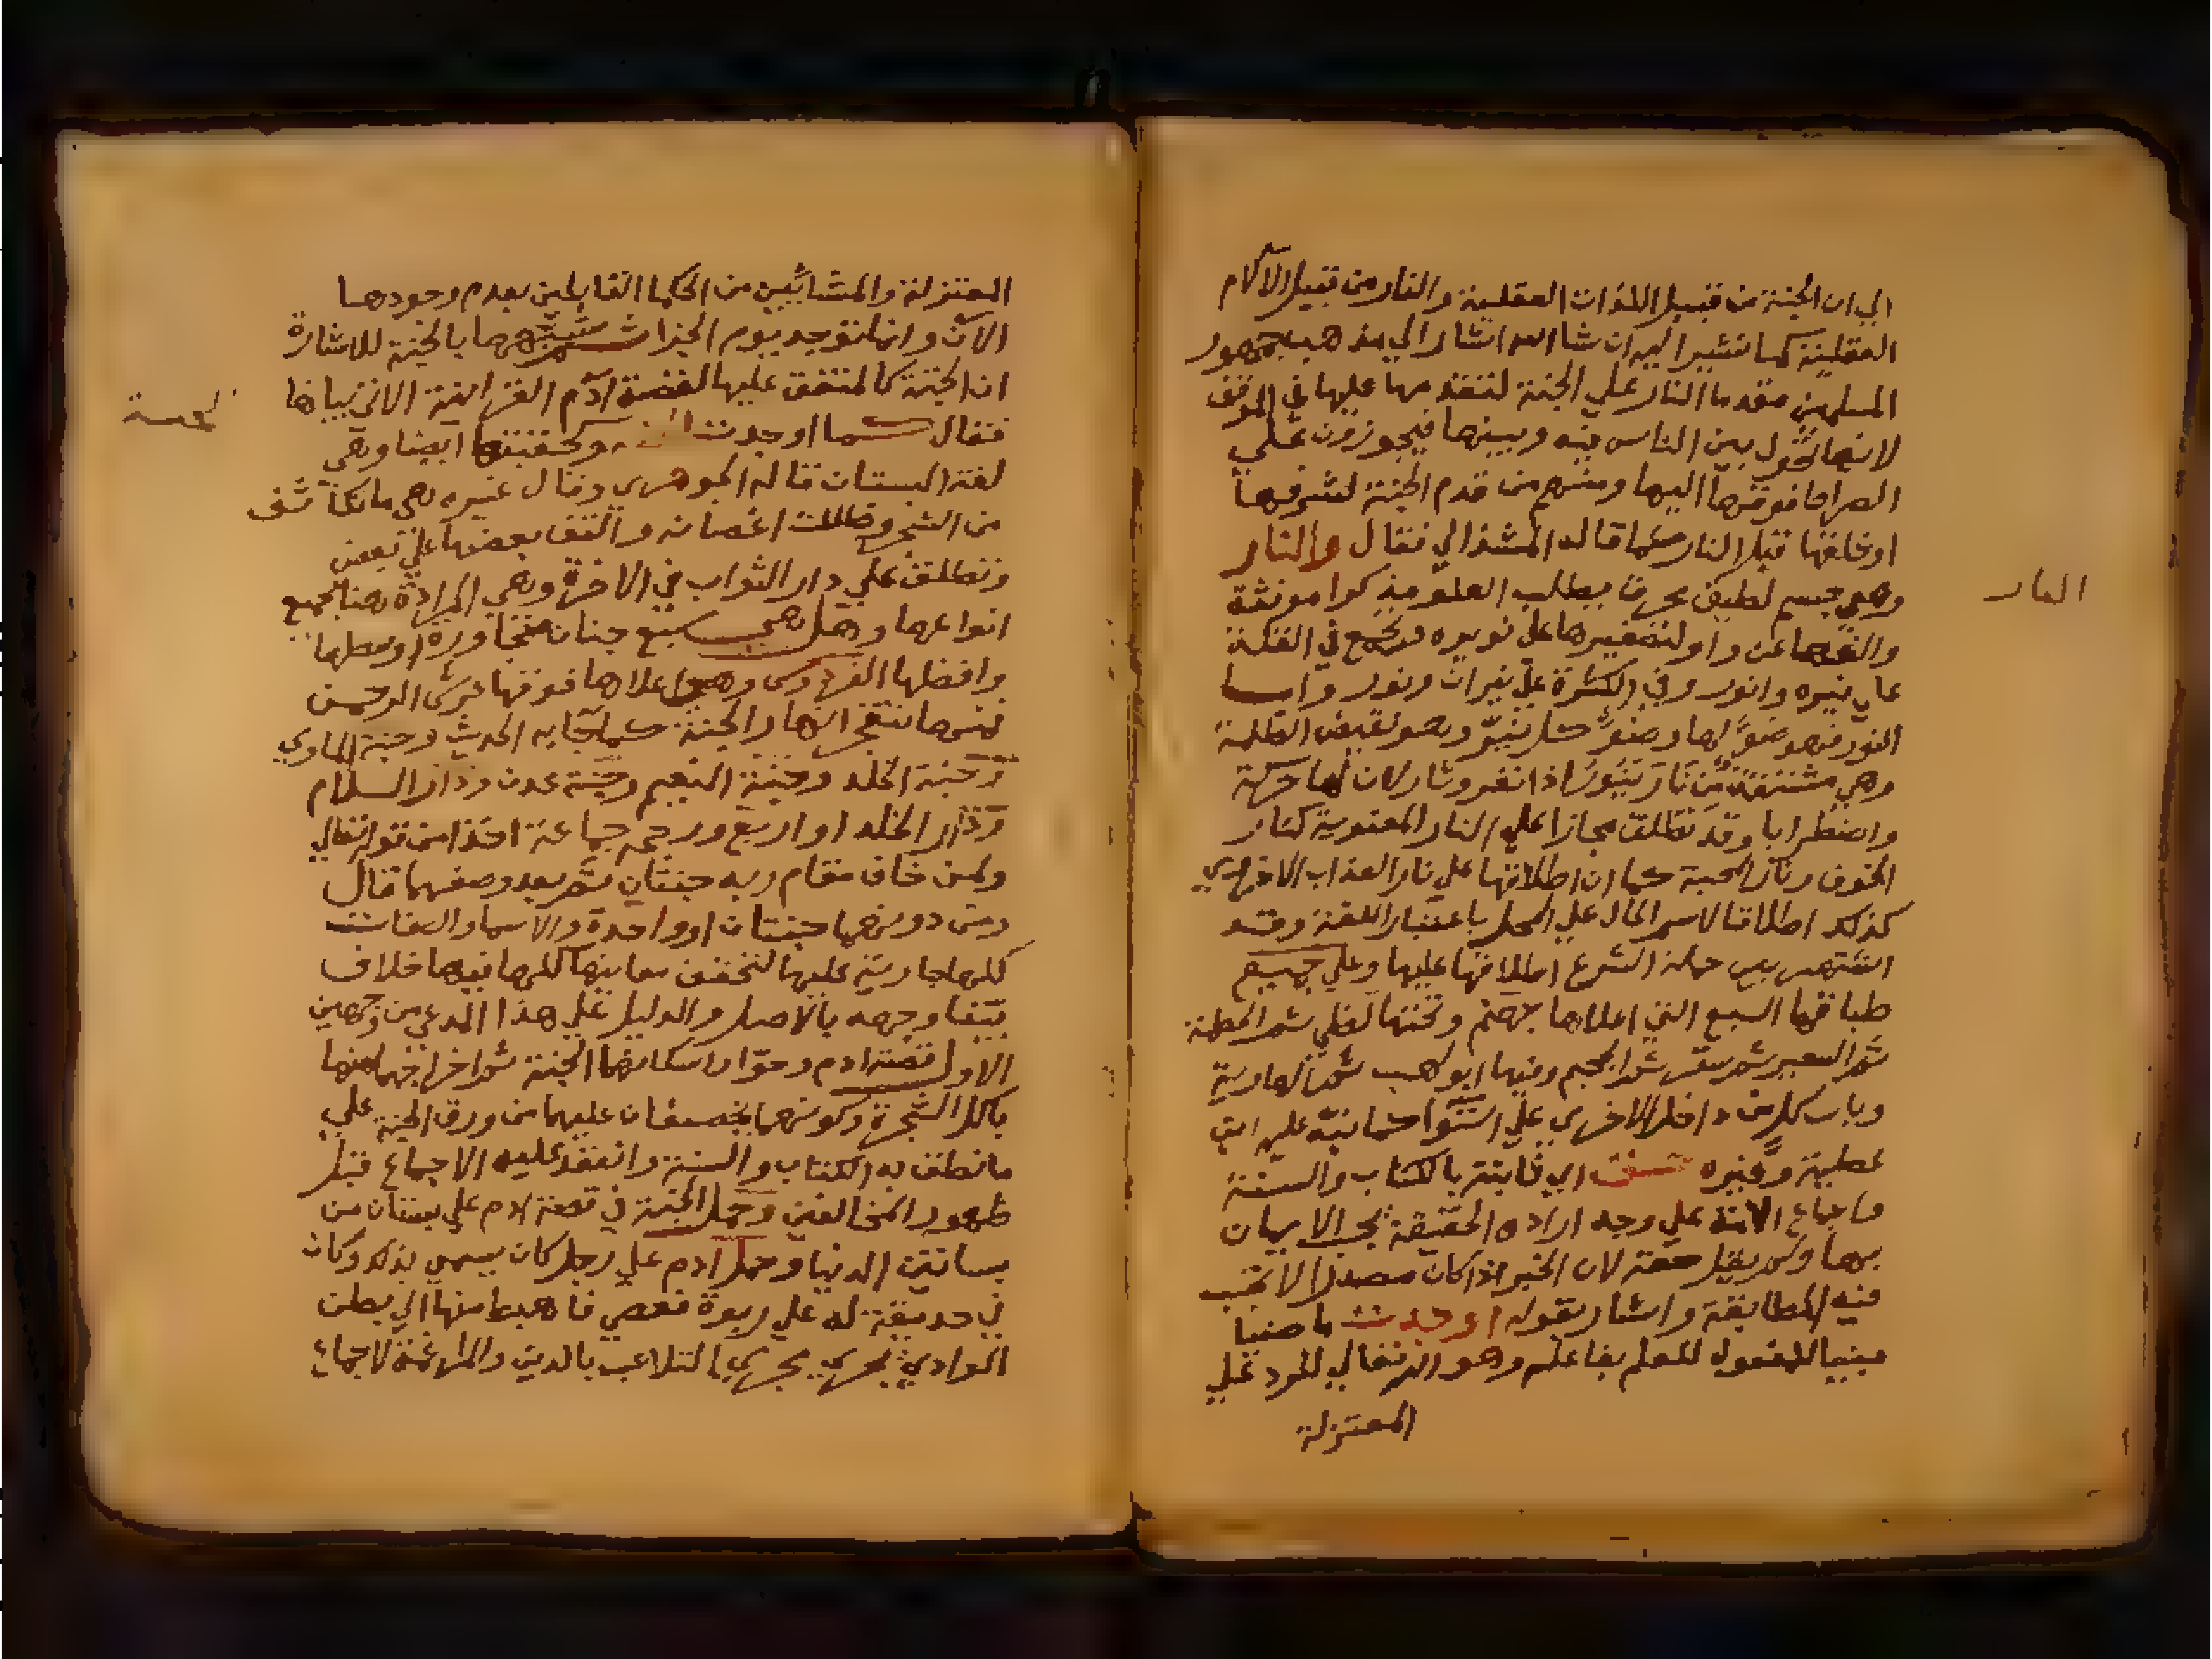 الي ان الجنة من قبيل اللذات العقلية والنار من قبيل الآلام
العقلية كما نشير اليه ان شا الله اشار الي مذهب جمهور
المسلمين مقدما النار علي الجنة لتقدمها عليها في الموقف
لانها تحول بين الناس فيه وبينها فيجوزون علي
الصراط فوقها اليها ومنهم من قدم الجنة لشرفها
او خلقها قبل النار كما قاله المشذالي فقال والنار
وهي جسم لطيف محرق يطلب العلو مذكرا مونثة
والفها عن واو لتصغيرها علي نويره وتجمع في القلة
علي نيره وانور وفي الكثرة علي نيران ونور واما
النور فهو ضوء لها وضوء كل نير وهو نقيض الظلمة
وهي مشتقة من نار ينور اذا نفر وثار لان لها حركة
واضطرابا وقد تطلق مجازا علي النار المعنوية كنار
الخوف ونار المحبة كما ان اطلاقها علي نار العذاب الاخروي
كذلك اطلاقا لاسم الحال علي المحل باعتبار اللغة وقد
اشتهر بين حملة الشرع اطلاقها عليها وعلي جميع
طباقها السبع التي اعلاها جهنم وتحتها لظي ثم الحطمة
ثم السعير ثم سقر ثم الجحيم وفيها ابو لهب ثم الهاوية
وباب كل من داخل الاخري علي استوا كما نبه عليه ابن
عطية وغيره اي ثابتة بالكتاب والسنة
واجماع الامة علي وجه اراده الحقيقة يجب الايمان
بها ولم يقل حقة لان الخبر اذا كان مصدرا لا تجب
فيه المطابقة واشار بقوله اوجدت ماضيا
مبنيا للمفعول للعلم بفاعله وهو الله تعالي للرد علي
المعتزلة
النار
المعتزلة والمشائين من الحكما القايلين بعدم وجودهما
الان وانما توجد يوم الجزا ثم شبهها بالجنة للاشارة
ان الجنة كالمتفق عليها لقصة ادم القرانية الاتي بيانها
فقال كما اوجدت وحقيقتها ايضا وهي
لغة البستان قاله الجوهري وقال غيره هي ما تكاثف
من الشجر وظللت اغصانه والتف بعضها علي بعض
وتطلق علي دار الثواب في الاخرة وهي المرادة هنا بجميع
انواعها وهل هي سبع جنان متجاورة اوسطها
وافضلها الفردوس وهي اعلاها فوقها عرش الرحمن
ومنها تتفجر انهار الجنة كما جا به الحديث وجنة الماوي
وجنة الخلد وجنة النعيم وجنة عدن ودار السلام
ودار الخلد او اربع ورجحه جماعة اخذا من قوله تعالي
ولمن خاف مقام ربه جنتان ثم بعد وصفهما قال
ومن دونهما جنتان او واحدة والاسما والصفات
كلها جارية عليها لتحقق معانيها كلها فيها خلاف
يتفا وجهه بالاصل والدليل علي هذا المدعي من وجهين
الاول قصة ادم وحوا واسكانهما الجنة ثم اخراجهما منها
باكل الشجرة وكونهما يخصفان عليهما من ورق الجنة علي
ما نطق به الكتاب والسنة وانعقد عليه الاجماع قبل
ظهور المخالفين وحمل الجنة في قصة ادم علي بستان من
بساتين الدنيا وحمل ادم علي رجل كان يسمي بذلك وكان
في حديقة له علي ربوة فعصي فاهبط منها الي بطن
الوادي يجري مجري التلاعب بالدين والمراغمة لاجماع
الجنة